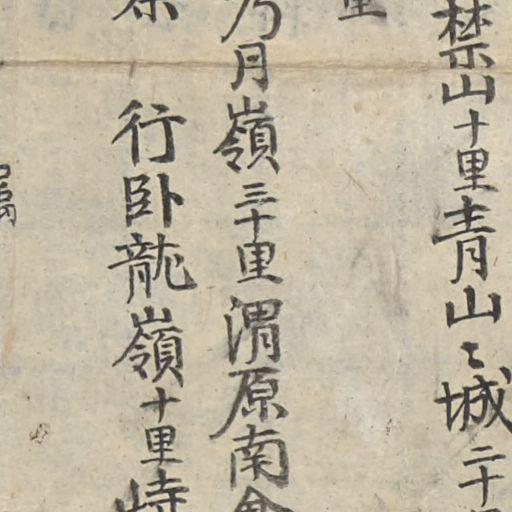 禁山十里青山〻城二十
里
乃月嶺三十里渭原南
行卧龍嶺十里